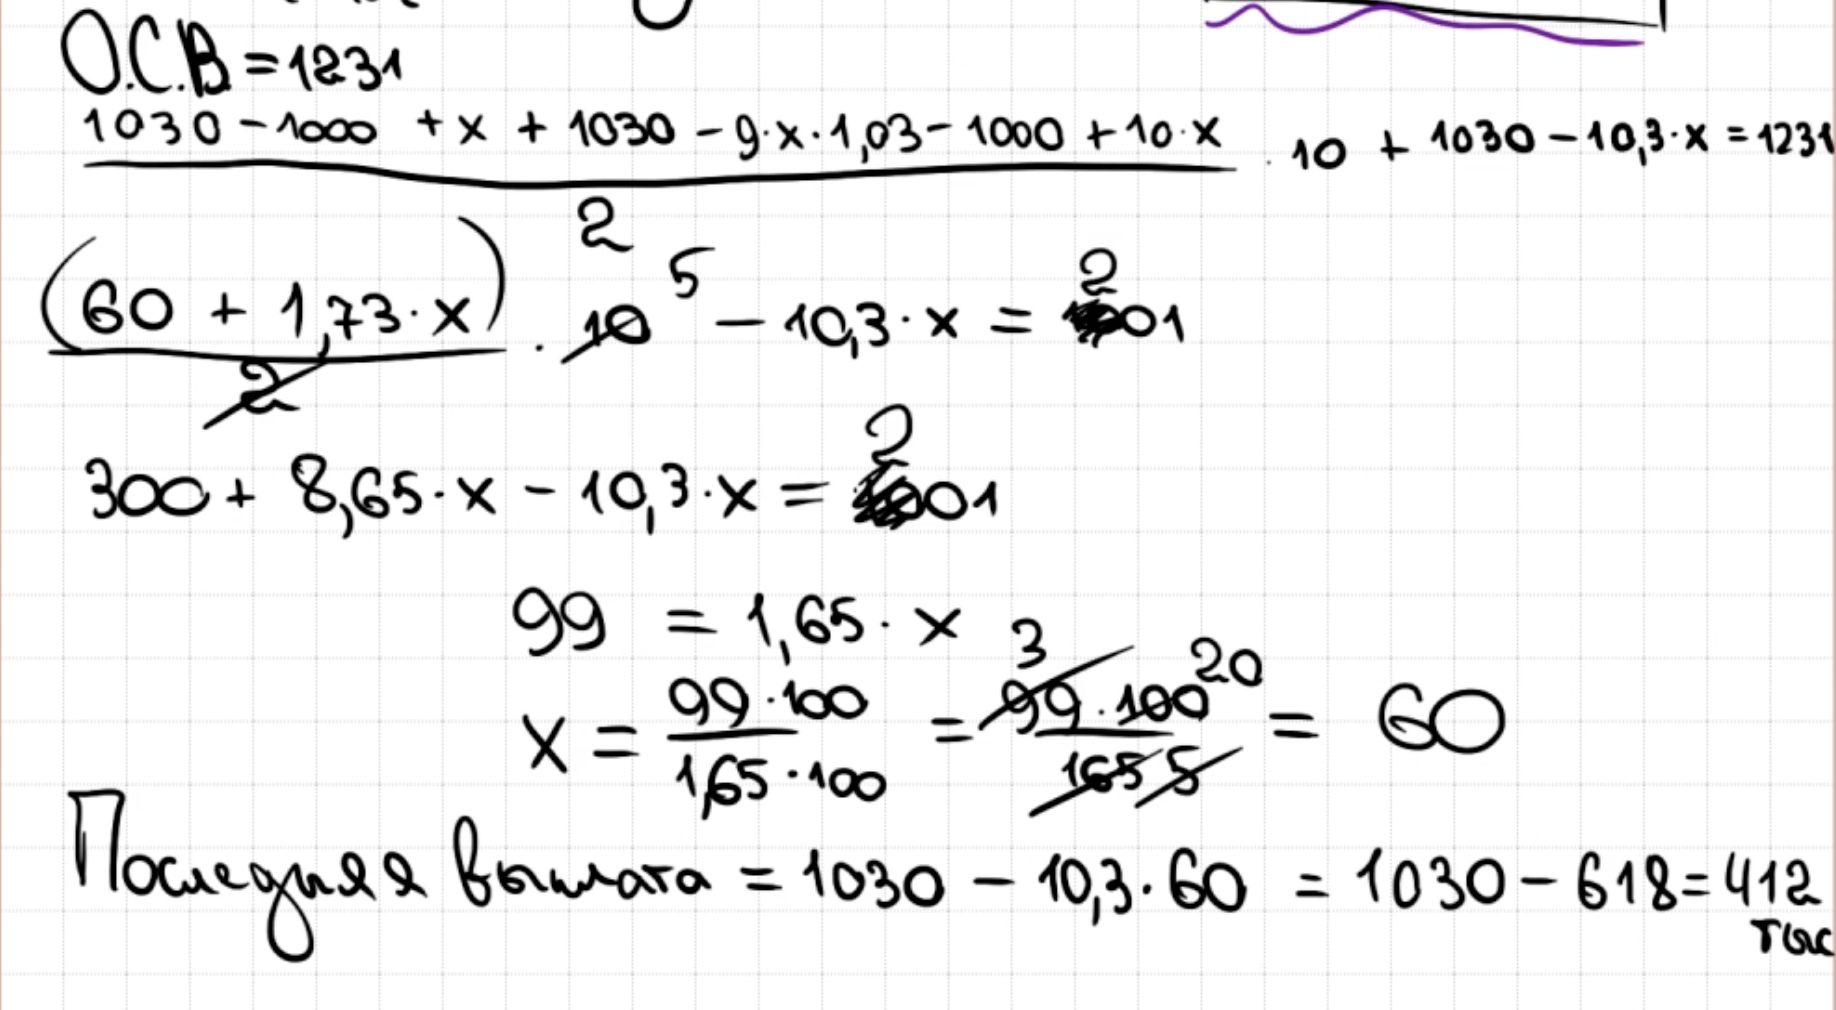 О.С.В. = 1231
1030 - 1000 + x + 1030 - 9·x·1,03 - 1000 + 10·x / 2 · 10 + 1030 - 10,3·x = 1231
(60 + 1,73·x) / 2 · 10 5 - 10,3·x = 201
300 + 8,65·x - 10,3·x = 201
99 = 1,65·x
x = 99·100 / 1,65·100 = 99·100 / 165 3 20 5 = 60
Последняя выплата = 1030 - 10,3·60 = 1030 - 618 = 412
тыс